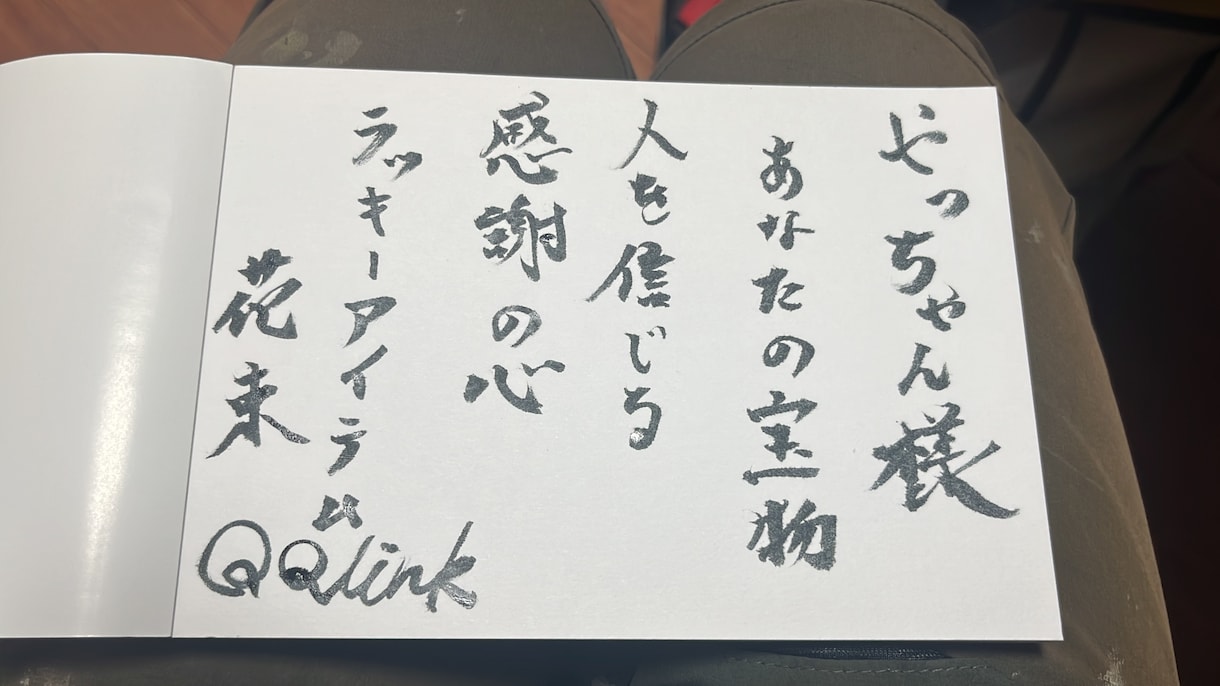 やっちゃん様
あなたの宝物
人を信じる
感謝の心
ラッキーアイテム
花束
QQlink